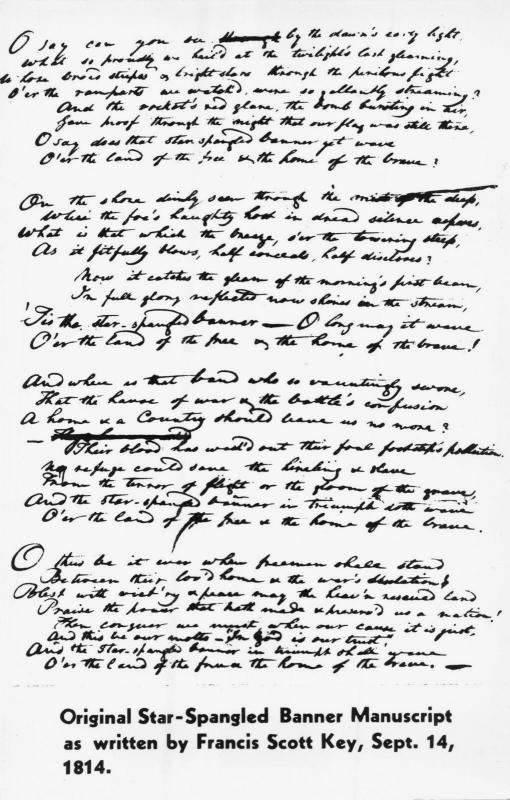 O say can you see by the dawn's early light,
What so proudly we hail'd at the twilight's last gleaming,
Whose broad stripes & bright stars through the perilous fight
O'er the ramparts we watch'd, were so gallantly streaming?
And the rocket's red glare, the bomb bursting in air,
Gave proof through the night that our flag was still there,
O say does that star-spangled banner yet wave
O'er the land of the free & the home of the brave?
On the shore dimly seen through the mists of the deep,
Where the foe's haughty host in dread silence reposes,
What is that which the breeze, o'er the towering steep,
As it fitfully blows, half conceals, half discloses?
Now it catches the gleam of the morning's first beam,
In full glory reflected now shines in the stream,
'Tis the star-spangled banner — O long may it wave
O'er the land of the free & the home of the brave!
And where is that band who so vauntingly swore,
That the havoc of war & the battle's confusion
A home & a Country should leave us no more?
— Their blood has wash'd out their foul footstep's pollution.
No refuge could save the hireling & slave
From the terror of flight or the gloom of the grave,
And the star-spangled banner in triumph doth wave
O'er the land of the free & the home of the brave.
O thus be it ever when freemen shall stand
Between their lov'd home & the war's desolation!
Blest with vict'ry & peace may the heav'n rescued land
Praise the power that hath made & preserv'd us a nation!
Then conquer we must, when our cause it is just,
And this be our motto - "In God is our trust"
And the star-spangled banner in triumph shall wave
O'er the land of the free & the home of the brave. —
Original Star-Spangled Banner Manuscript
as written by Francis Scott Key, Sept. 14,
1814.